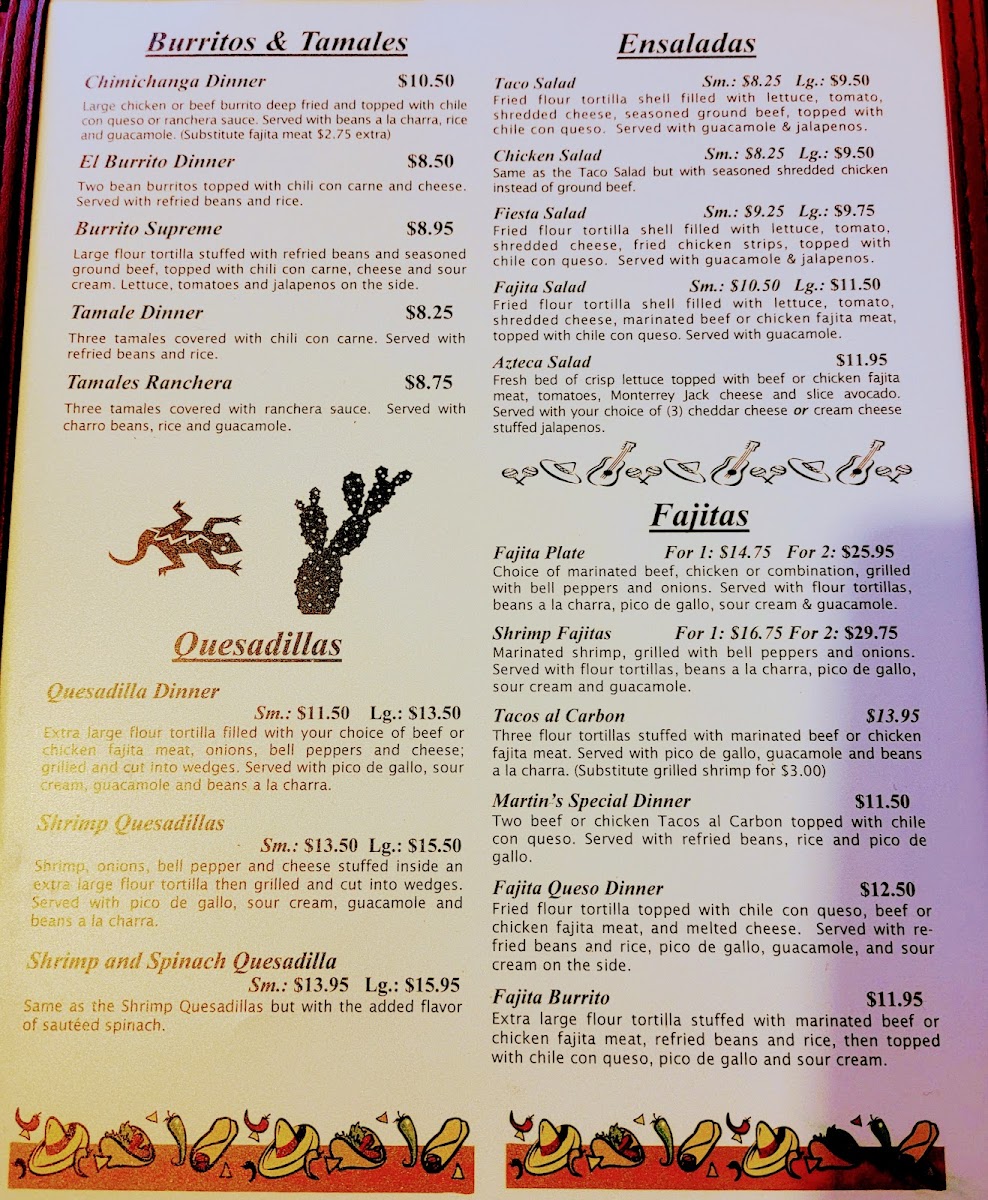 Burritos & Tamales
Chimichanga Dinner $10.50
Large chicken or beef burrito deep fried and topped with chile
con queso or ranchera sauce. Served with beans a la charra, rice
and guacamole. (Substitute fajita meat $2.75 extra)
El Burrito Dinner $8.50
Two bean burritos topped with chili con carne and cheese.
Served with refried beans and rice.
Burrito Supreme $8.95
Large flour tortilla stuffed with refried beans and seasoned
ground beef, topped with chili con carne, cheese and sour
cream. Lettuce, tomatoes and jalapenos on the side.
Tamale Dinner $8.25
Three tamales covered with chili con carne. Served with
refried beans and rice.
Tamales Ranchera $8.75
Three tamales covered with ranchera sauce. Served with
charro beans, rice and guacamole.
Quesadillas
Quesadilla Dinner
Sm.: $11.50 Lg.: $13.50
Extra large flour tortilla filled with your choice of beef or
chicken fajita meat, onions, bell peppers and cheese;
grilled and cut into wedges. Served with pico de gallo, sour
cream, guacamole and beans a la charra.
Shrimp Quesadillas
Sm.: $13.50 Lg.: $15.50
Shrimp, onions, bell pepper and cheese stuffed inside an
extra large flour tortilla then grilled and cut into wedges.
Served with pico de gallo, sour cream, guacamole and
beans a la charra.
Shrimp and Spinach Quesadilla
Sm.: $13.95 Lg.: $15.95
Same as the Shrimp Quesadillas but with the added flavor
of sautéed spinach.
Ensaladas
Taco Salad Sm.: $8.25 Lg.: $9.50
Fried flour tortilla shell filled with lettuce, tomato,
shredded cheese, seasoned ground beef, topped with
chile con queso. Served with guacamole & jalapenos.
Chicken Salad Sm.: $8.25 Lg.: $9.50
Same as the Taco Salad but with seasoned shredded chicken
instead of ground beef.
Fiesta Salad Sm.: $9.25 Lg.: $9.75
Fried flour tortilla shell filled with lettuce, tomato,
shredded cheese, fried chicken strips, topped with
chile con queso. Served with guacamole & jalapenos.
Fajita Salad Sm.: $10.50 Lg.: $11.50
Fried flour tortilla shell filled with lettuce, tomato,
shredded cheese, marinated beef or chicken fajita meat,
topped with chile con queso. Served with guacamole.
Azteca Salad $11.95
Fresh bed of crisp lettuce topped with beef or chicken fajita
meat, tomatoes, Monterrey Jack cheese and slice avocado.
Served with your choice of (3) cheddar cheese or cream cheese
stuffed jalapenos.
Fajitas
Fajita Plate For 1: $14.75 For 2: $25.95
Choice of marinated beef, chicken or combination, grilled
with bell peppers and onions. Served with flour tortillas,
beans a la charra, pico de gallo, sour cream & guacamole.
Shrimp Fajitas For 1: $16.75 For 2: $29.75
Marinated shrimp, grilled with bell peppers and onions.
Served with flour tortillas, beans a la charra, pico de gallo,
sour cream and guacamole.
Tacos al Carbon $13.95
Three flour tortillas stuffed with marinated beef or chicken
fajita meat. Served with pico de gallo, guacamole and beans
a la charra. (Substitute grilled shrimp for $3.00)
Martin's Special Dinner $11.50
Two beef or chicken Tacos al Carbon topped with chile
con queso. Served with refried beans, rice and pico de
gallo.
Fajita Queso Dinner $12.50
Fried flour tortilla topped with chile con queso, beef or
chicken fajita meat, and melted cheese. Served with re-
fried beans and rice, pico de gallo, guacamole, and sour
cream on the side.
Fajita Burrito $11.95
Extra large flour tortilla stuffed with marinated beef or
chicken fajita meat, refried beans and rice, then topped
with chile con queso, pico de gallo and sour cream.